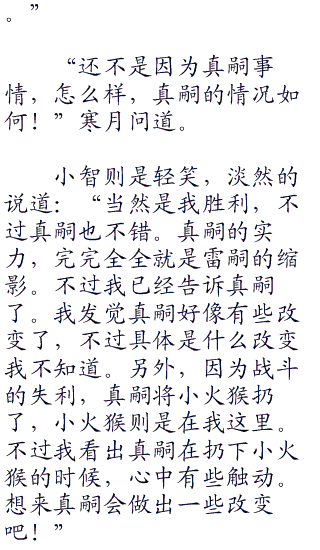 。”
“还不是因为真嗣事
情，怎么样，真嗣的情况如
何！”寒月问道。
小智则是轻笑，淡然的
说道：“当然是我胜利，不
过真嗣也不错。真嗣的实
力，完完全全就是雷嗣的缩
影。不过我已经告诉真嗣
了。我发觉真嗣好像有些改
变了，不过具体是什么改变
我不知道。另外，因为战斗
的失利，真嗣将小火猴扔
了，小火猴则是在我这里。
不过我看出真嗣在扔下小火
猴的时候，心中有些触动。
想来真嗣会做出一些改变
吧！”